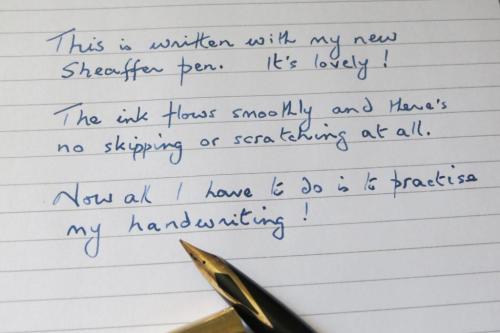 This is written with my new
Sheaffer pen. It's lovely!
The ink flows smoothly and there's
no skipping or scratching at all.
Now all I have to do is to practise
my handwriting!